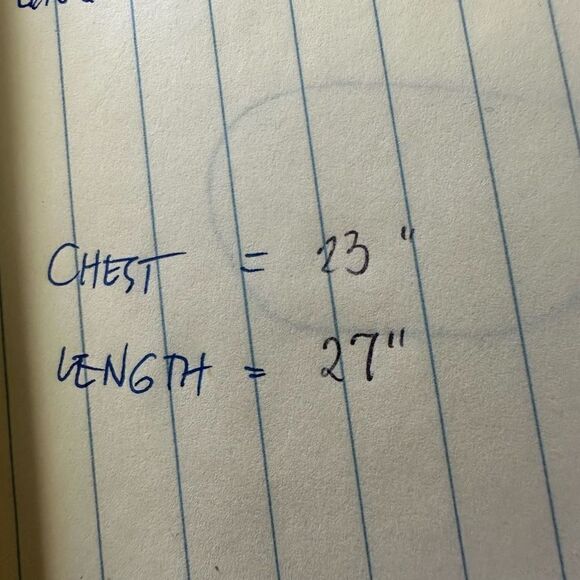 CHEST = 23"
LENGTH = 27"